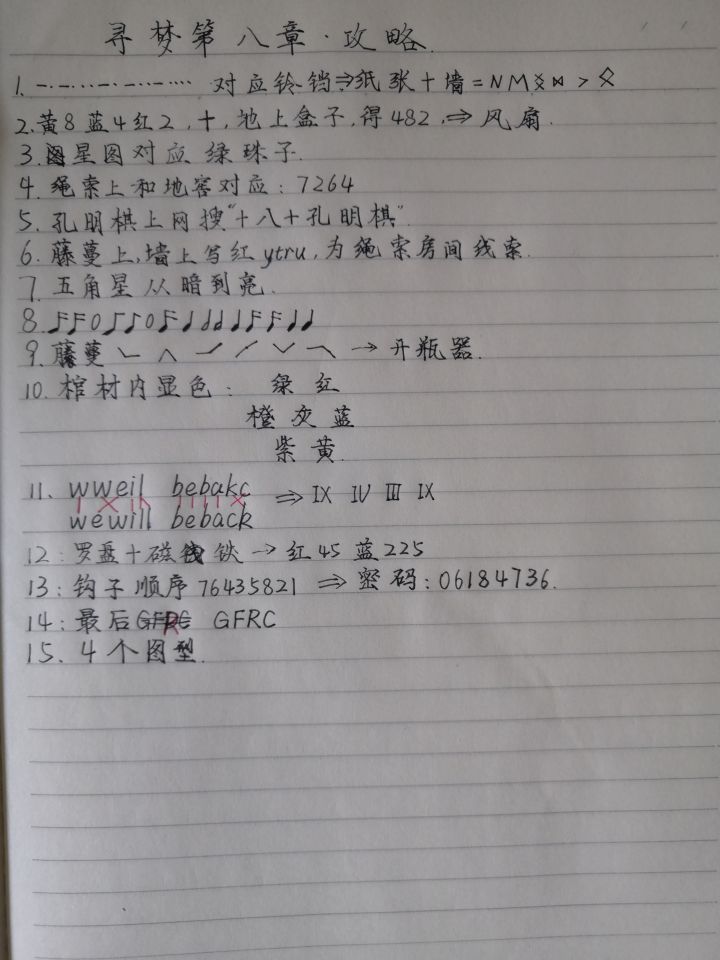 寻梦第八章·攻略.
1. —·—·...—·—·—·—···· 对应铃铛⇒纸张+墙=NMᛝᛞ>ᛟ
2. 黄8蓝4红2,+,地上盒子,得482,⇒风扇.
3. 星图对应绿珠子.
4. 绳索上和地窖对应:7264
5. 孔明棋上网搜"十八+孔明棋".
6. 藤蔓上,墙上写红ytru,为绳索房间线索.
7. 五角星从暗到亮.
8. ♬♬0♬♪0♬♩♩♩♩♬♬♩♩
9. 藤蔓 → 开瓶器.
10. 棺材内显色: 绿 红
橙 灰 蓝
紫 黄
11. wweil bebakc ⇒ IX IV III IX
wewill beback
12: 罗盘+磁铁→红45蓝225
13: 钩子顺序76435821 ⇒ 密码:06184736.
14: 最后 GFRC
15. 4个图型.